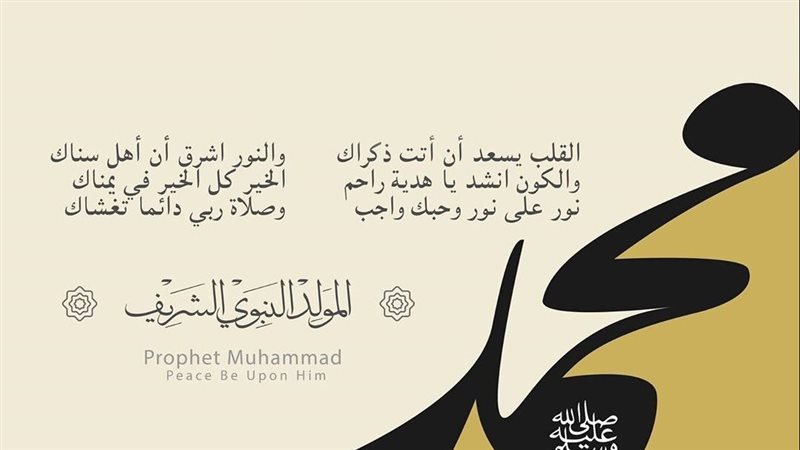 القلب يسعد أن أتت ذكراك والنور اشرق أن أهل سناك
والكون انشد يا هدية راحم الخير كل الخير في يمناك
نور على نور وحبك واجب وصلاة ربي دائما تغشاك
المولد النبوي الشريف
Prophet Muhammad
Peace Be Upon Him
محمد
صلى الله
عليه
وسلم